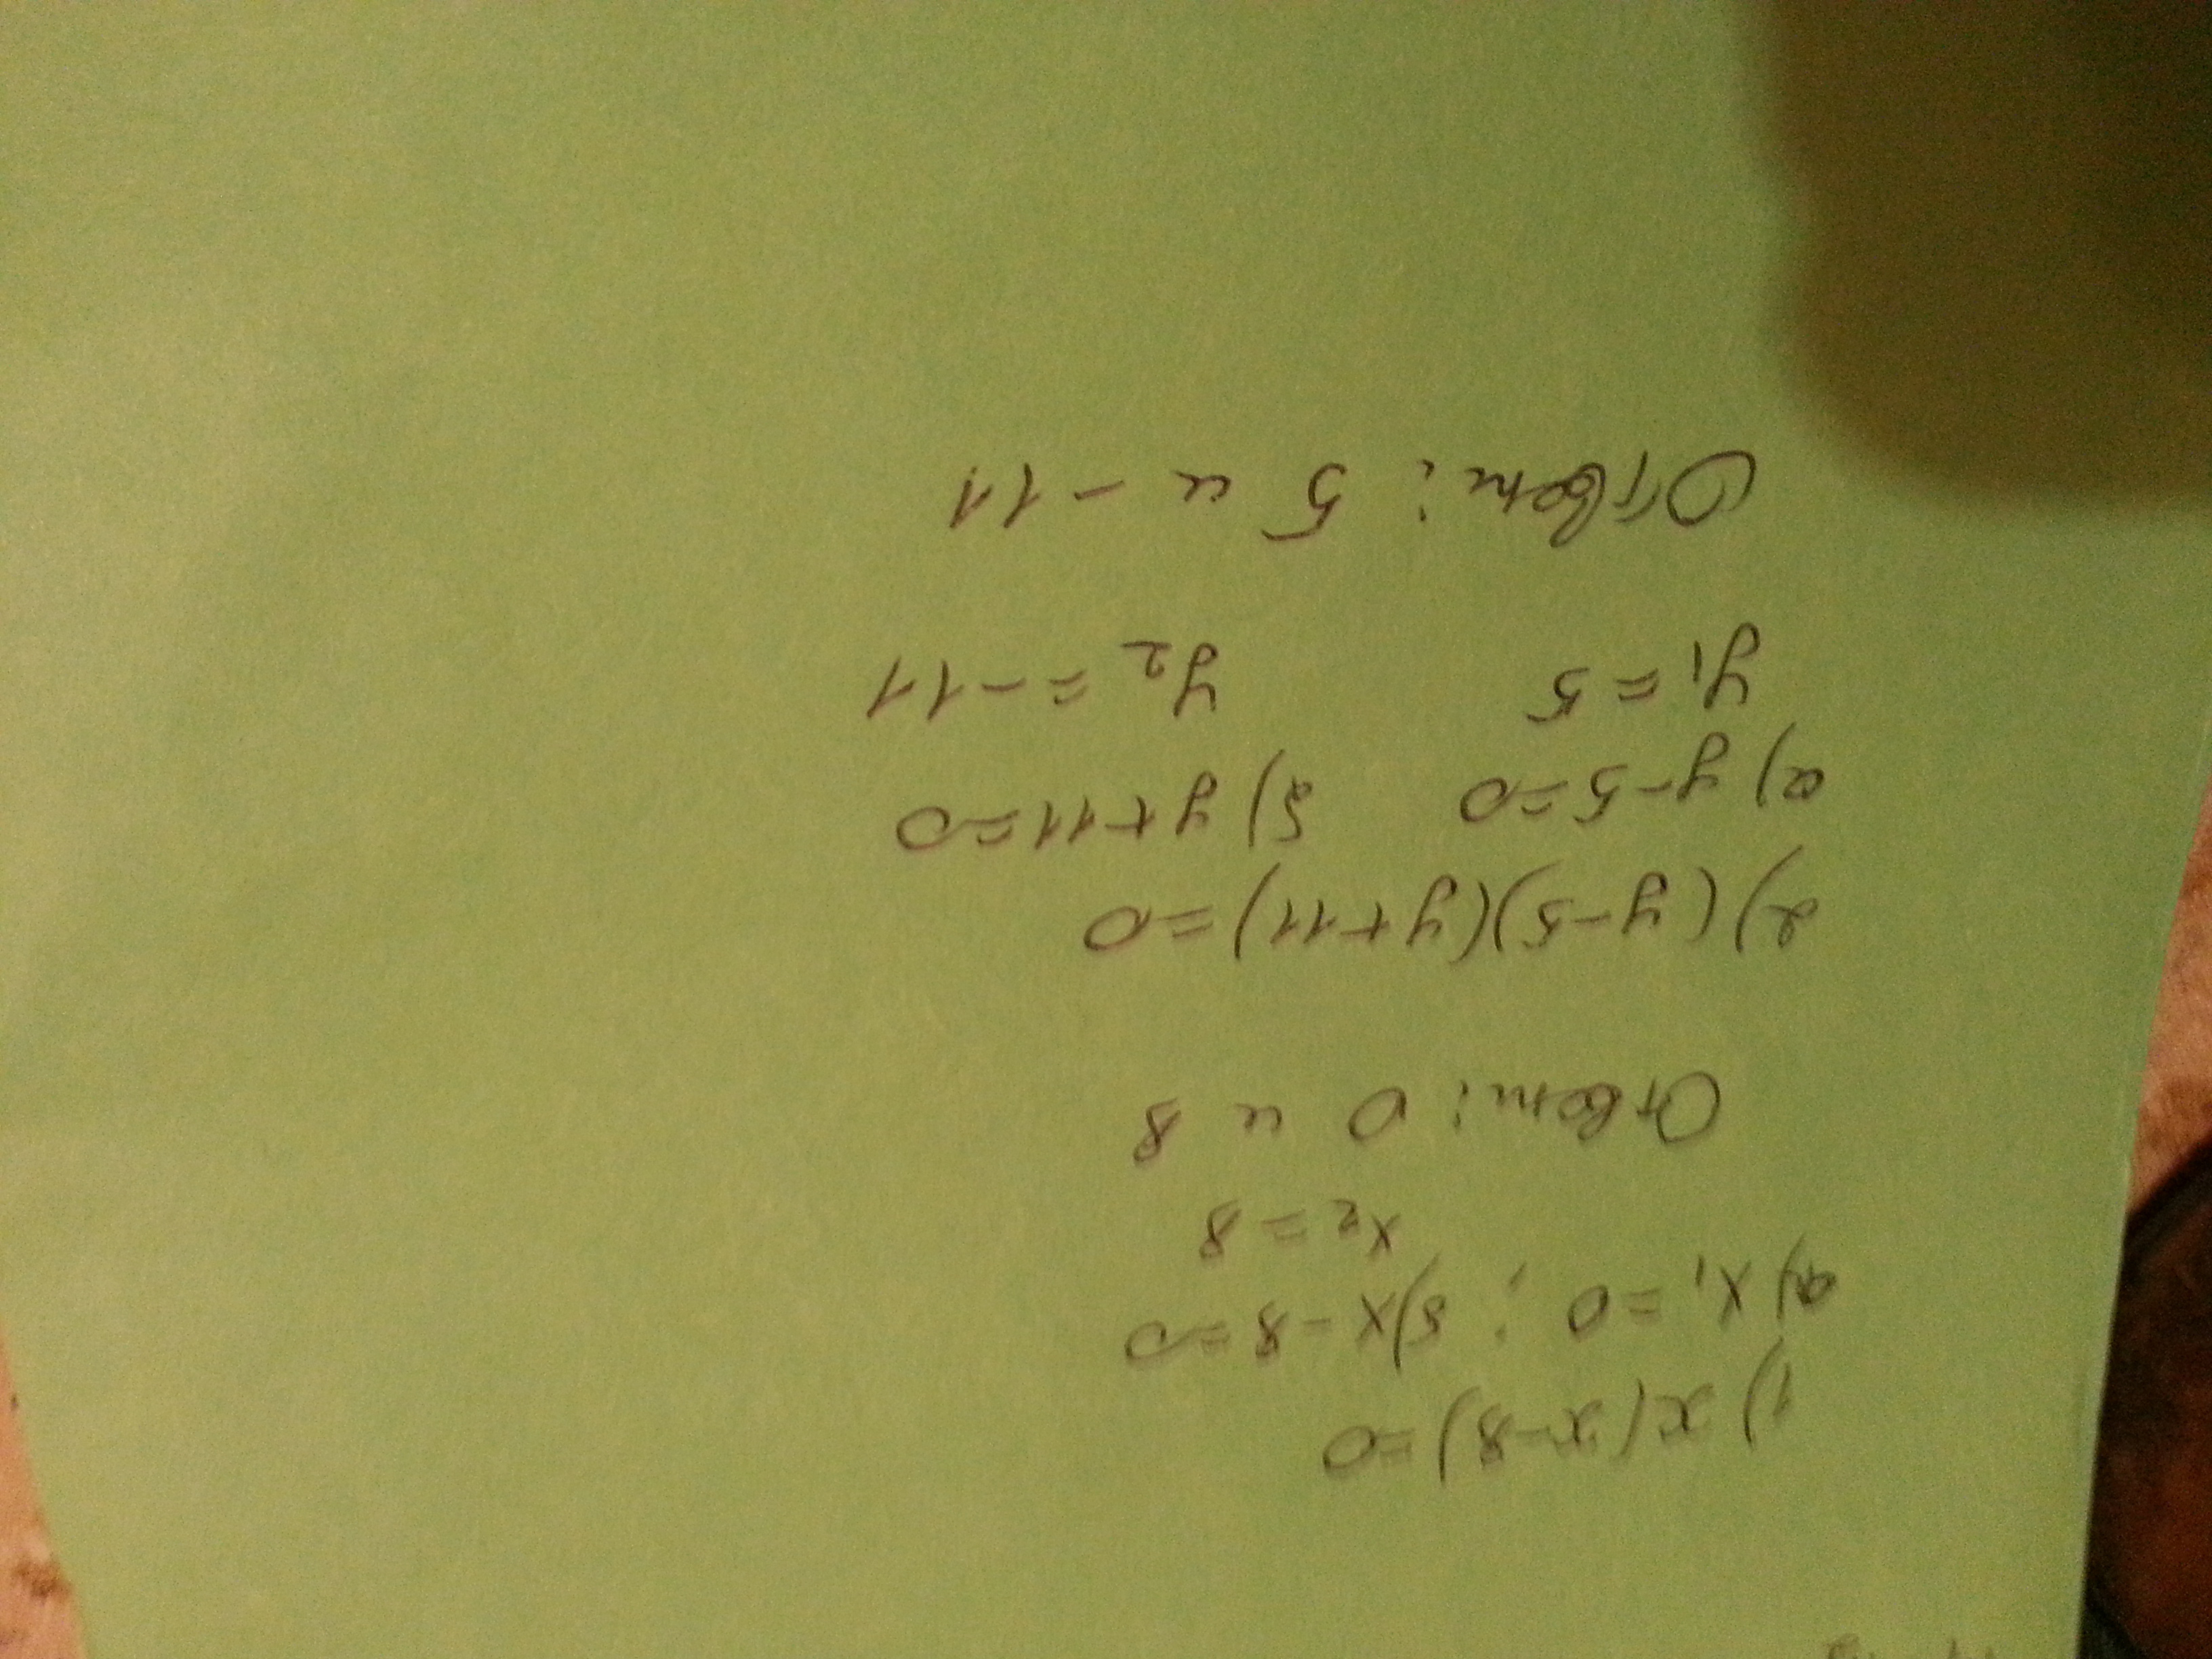 1) x(x-8)=0
а) x₁=0; б) x-8=0
x₂=8
Ответ: 0 и 8
2) (y-5)(y+11)=0
а) y-5=0 б) y+11=0
y₁=5 y₂=-11
Ответ: 5 и -11